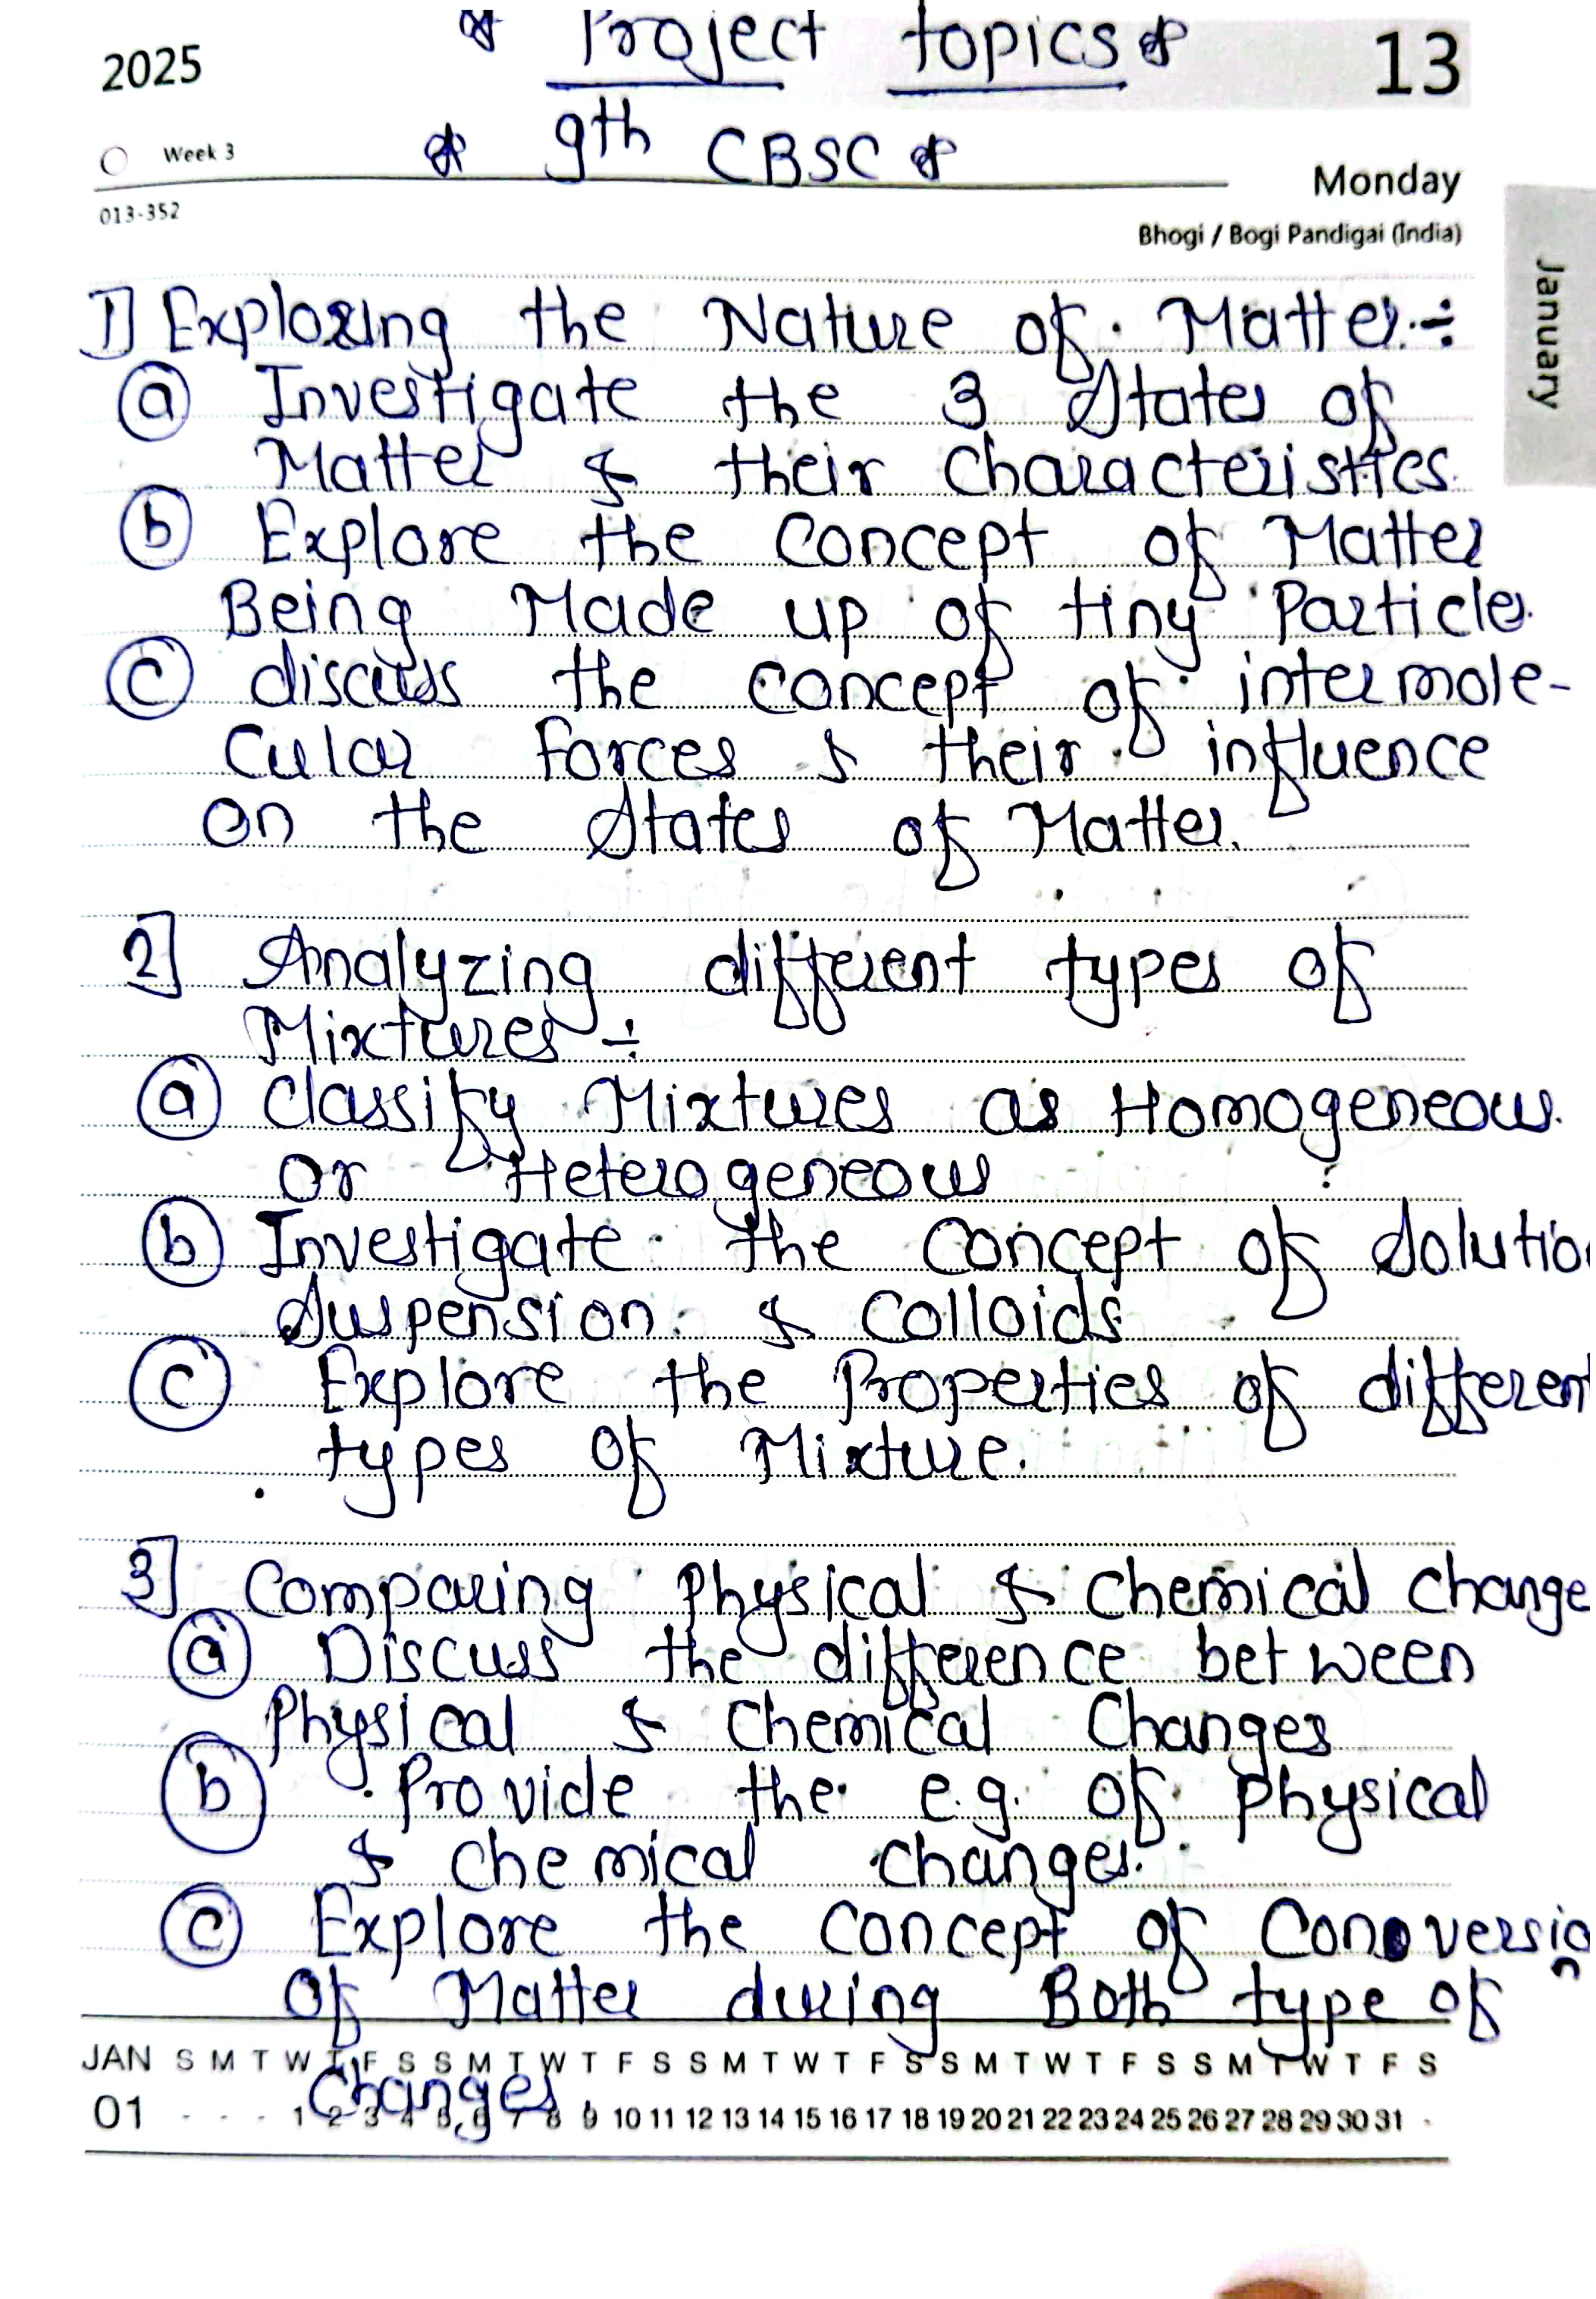 * Project topics *
2025
13
* 9th CBSC *
Week 3
Monday
013-352
Bhogi / Bogi Pandigai (India)
January
1] Exploring the Nature of Matter:-
(a) Investigate the 3 States of
Matter & their Characteristics.
(b) Explore the Concept of Matter
Being Made up of tiny Particles.
(c) discuss the concept of intermole-
Cular forces & their influence
on the States of Matter.
2] Analyzing different types of
Mixtures ÷
(a) Classify Mixtures as Homogeneous.
Or Heterogeneous
(b) Investigate the Concept of Solution
Suspension & Colloids
(c) Explore the Properties of different
types of Mixture.
3] Comparing Physical & Chemical Change
(a) Discuss the difference between
Physical & Chemical Changes
(b) Provide the e.g. of Physical
& Chemical changes.
(c) Explore the Concept of Conversion
Of Matter during Both type of
Changes.
JAN S M T W T F S S M T W T F S S M T W T F S S M T W T F S S M T W T F S
01 - - - 1 2 3 4 5 6 7 8 9 10 11 12 13 14 15 16 17 18 19 20 21 22 23 24 25 26 27 28 29 30 31 -